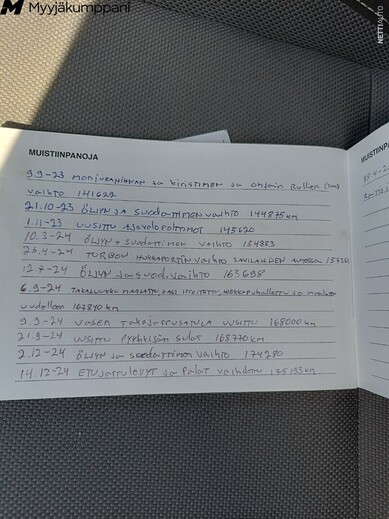 Myyjäkumppani
NETTIAUTO
MUISTIINPANOJA
9.9-23 MONIURAHIHNAN JA KIRISTIMEN JA OHJAIN RULLIEN
VAIHTO 141622
21.10-23 ÖLJYN JA SUODATTIMEN VAIHTO 144875 km
1.11-23 UUSITTU AJOVALOPOLTTIMOT 145620
10.3-24 ÖLJYN + SUODATTIMEN VAIHTO
25.4-24 TURBON HUKKAPORTIN VAIHTO
12.7-24 ÖLJYN JA SUOD. VAIHTO 163698
6.9-24 TAKALUUKKU MAALATTU, LASI IRROITETTU, HIEKKAPUHALLETTU JA MAALATTU
UUDELLEEN 167840 km
9.9-24 VASEN TAKAJARRUSATULA UUSITTU 168000 km
21.9-24 UUSITTU PYYHKIJÄN SULAT 168770 km
2.12-24 ÖLJYN JA SUODATTIMEN VAIHTO 174280
14.12-24 ETUJARRULEVYT JA PALAT VAIHDETTU 175193 km
MUISTIINP